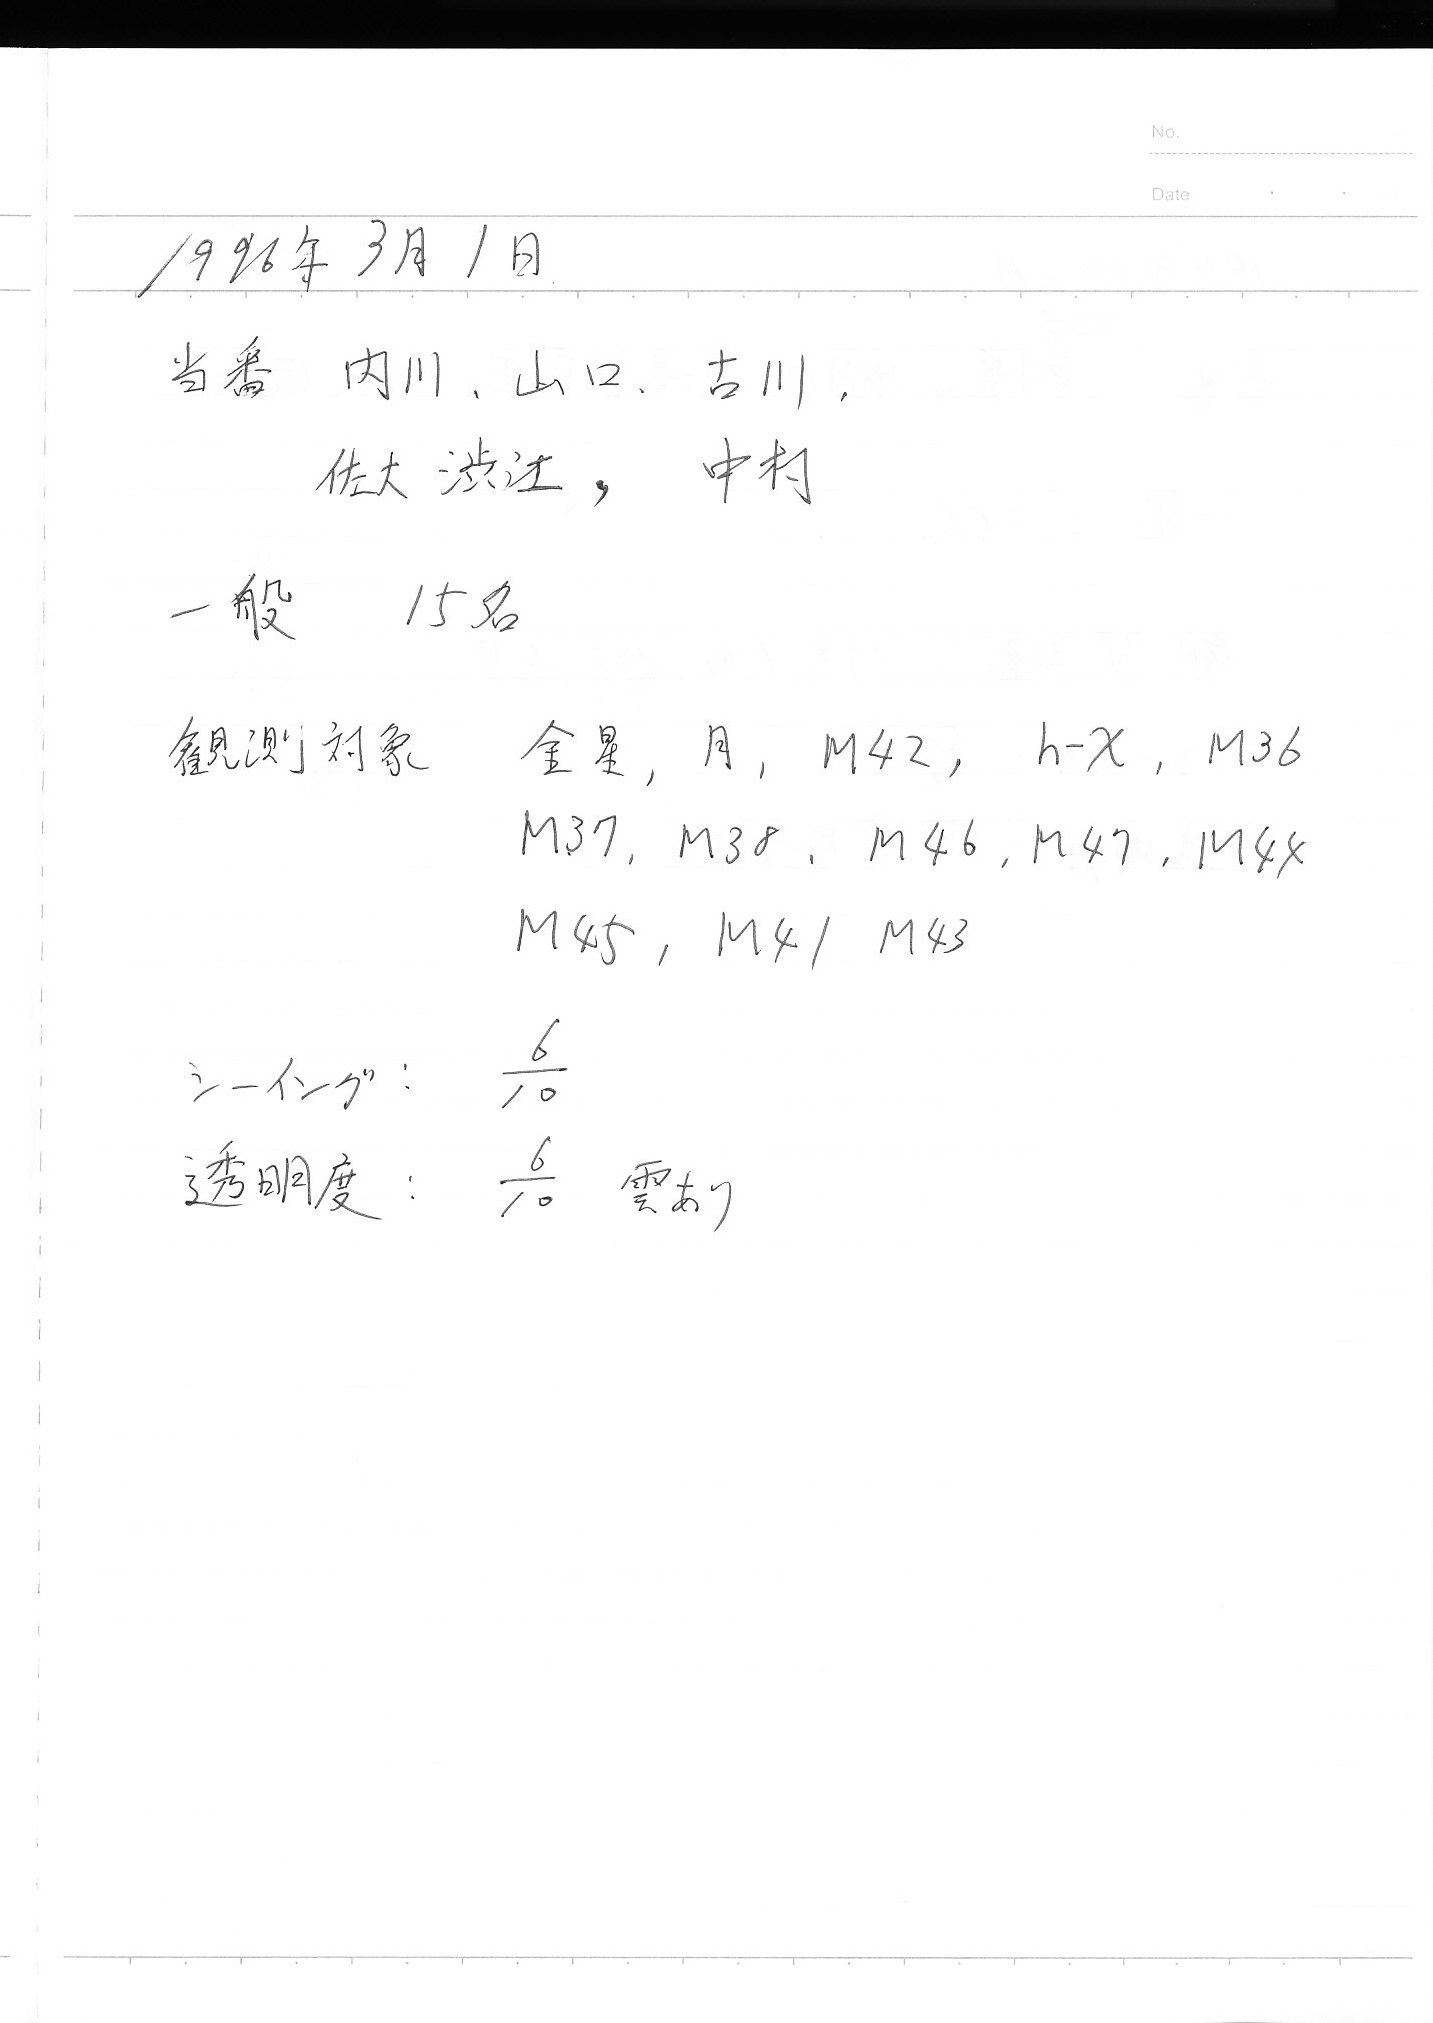 No.
Date
1996年 3月 1日
当番 内川、山口、古川、
佐大 渋江, 中村
一般 15名
観測対象 金星, 月, M42, h-χ, M36
M37, M38, M46, M47, M44
M45, M41 M43
シーイング: 6/10
透明度: 6/10 雲あり